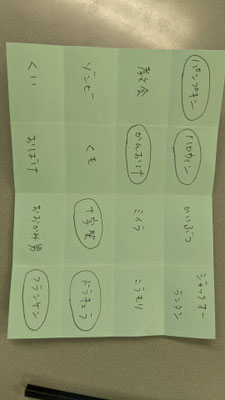 パンプキン
ハロウィン
かいぶつ
ジャックオー
ランタン
教会
かんおけ
ミイラ
コウモリ
ゾンビ
くも
十字架
ドラキュラ
くい
おばけ
おおかみ男
フランケン